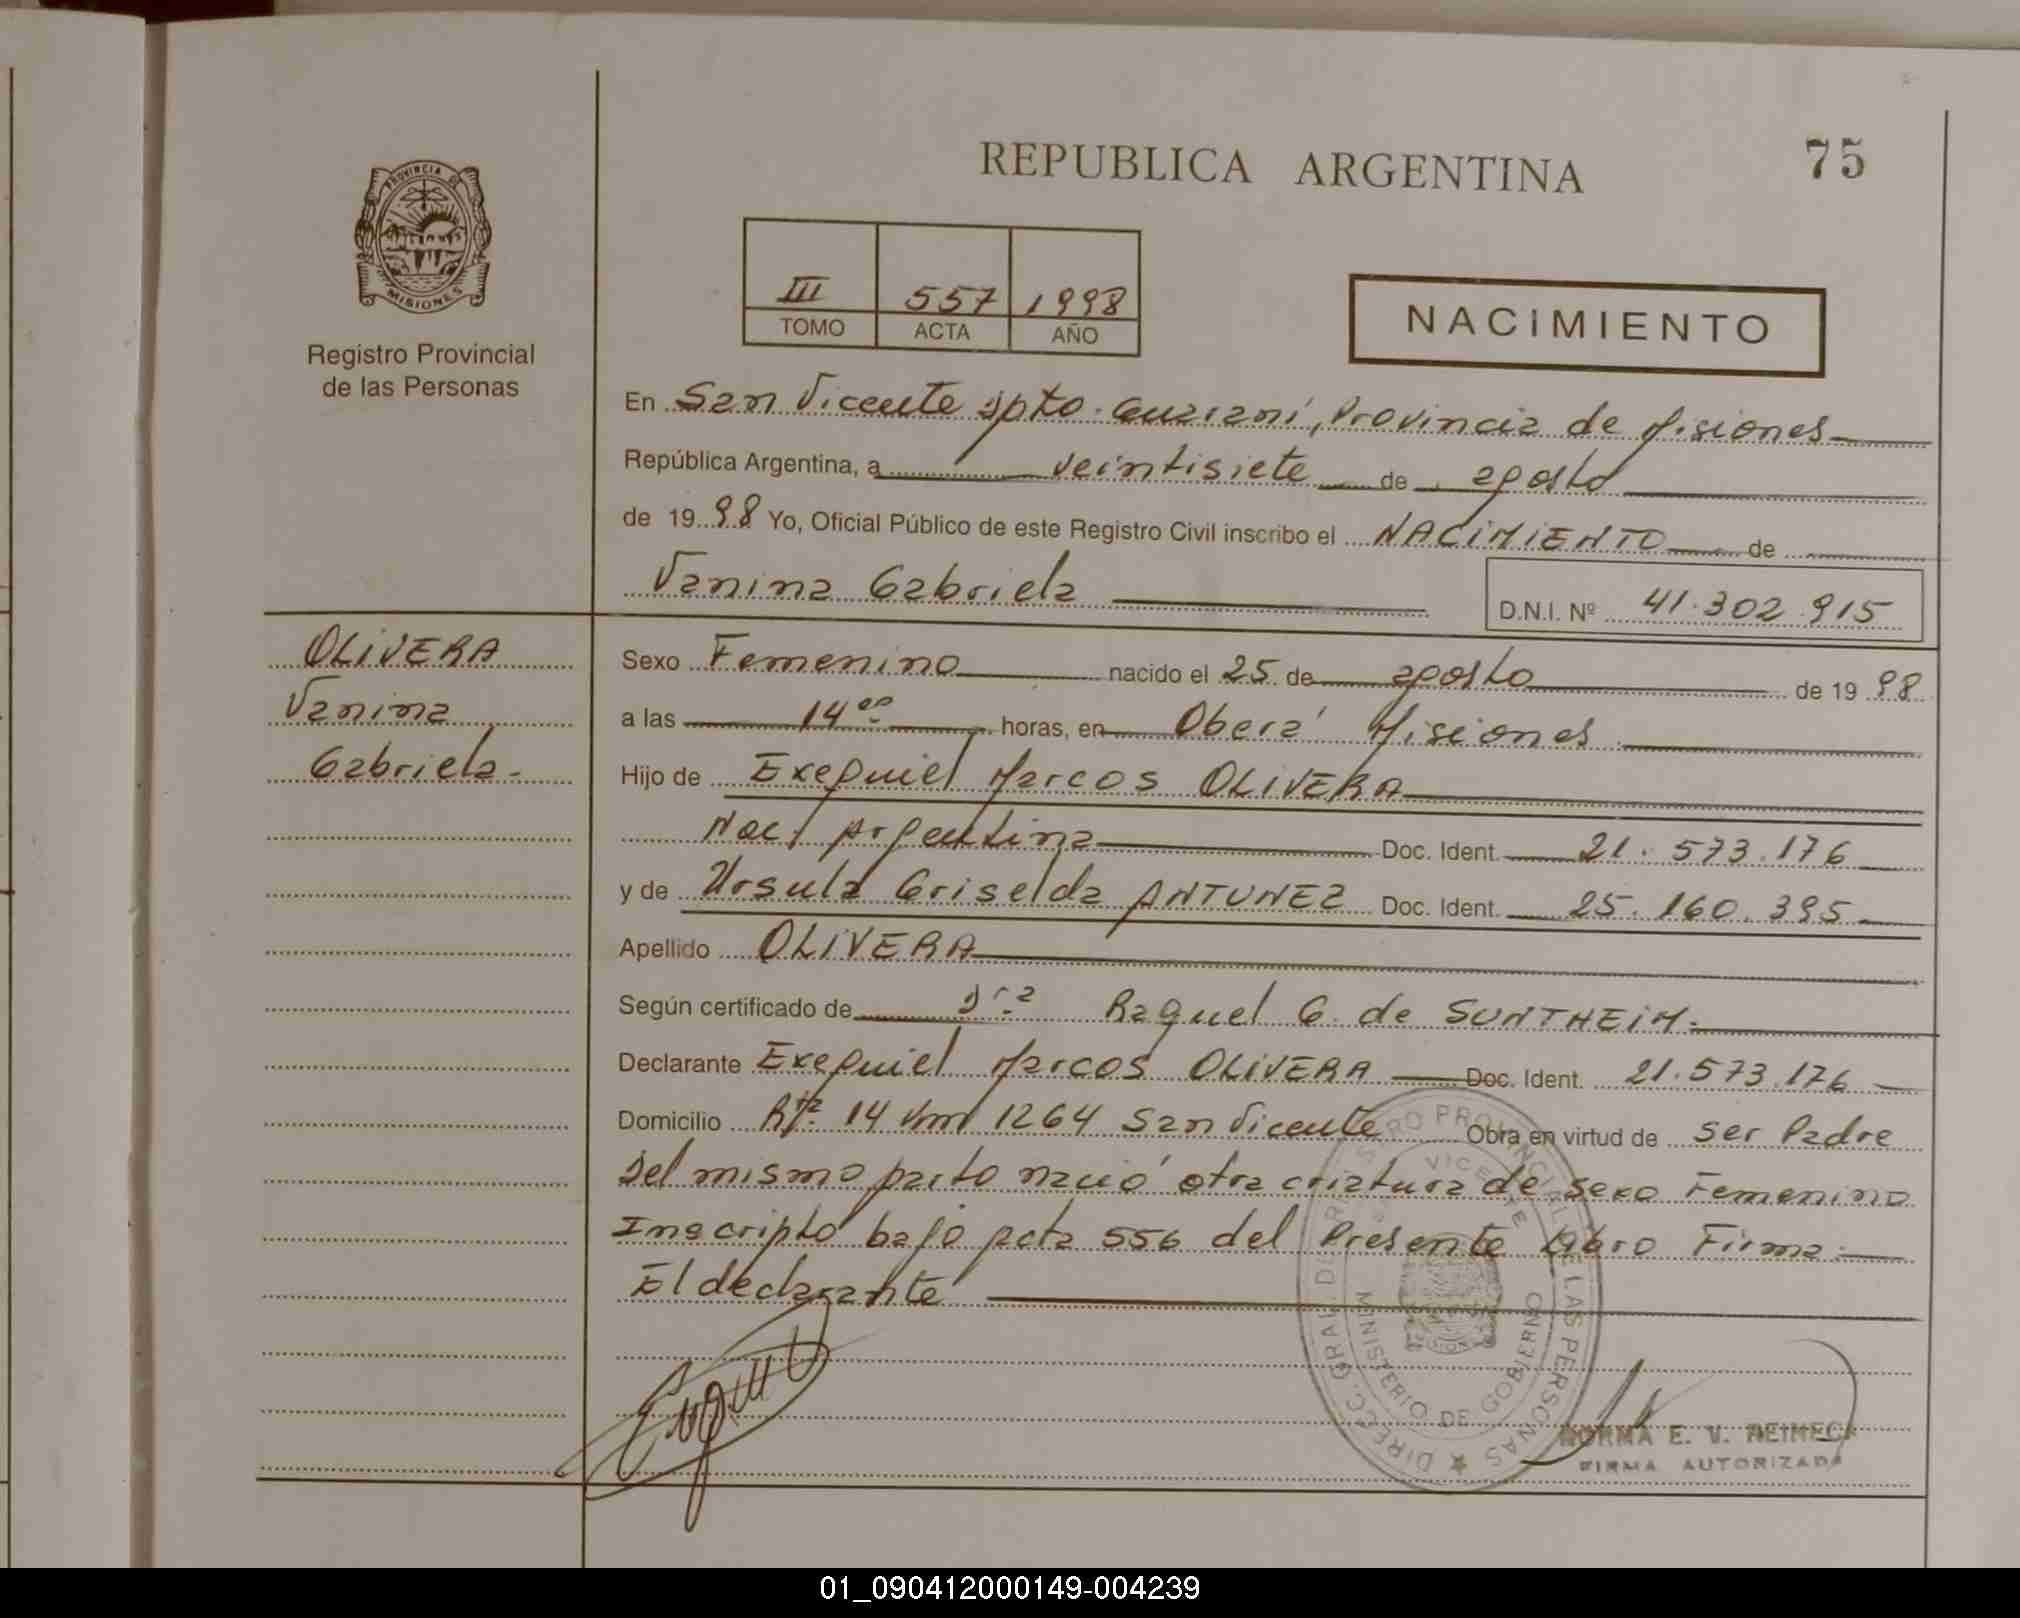 REPUBLICA ARGENTINA
75
PROVINCIA DE
MISIONES
Registro Provincial
de las Personas
III 557 1998
TOMO ACTA AÑO
NACIMIENTO
En San Vicente Dpto. Guaraní, Provincia de Misiones
República Argentina, a veintisiete de agosto
de 1998 Yo, Oficial Público de este Registro Civil inscribo el NACIMIENTO de
Vanina Gabriela
D.N.I. Nº 41.302.915
OLIVERA
Vanina
Gabriela.-
Sexo Femenino nacido el 25 de agosto de 1998
a las 14 00 horas, en Oberá Misiones
Hijo de Exequiel Marcos OLIVERA
Nac. Argentina Doc. Ident. 21.573.176
y de Ursula Griselda ANTUNEZ Doc. Ident. 25.160.395
Apellido OLIVERA
Según certificado de Dra Raquel G. de SUNTHEIM.
Declarante Exequiel Marcos OLIVERA Doc. Ident. 21.573.176
Domicilio Rta. 14 km 1264 San Vicente Obra en virtud de ser Padre
Del mismo parto nació otra criatura de sexo Femenino
Inscripto bajo acta 556 del Presente Libro Firma:
El declarante
DIREC. GRAL. DE REGISTRO PROVINCIAL DE LAS PERSONAS
VICENTE
MINISTERIO DE GOBIERNO
NORMA E. V.
FIRMA AUTORIZADA
01_090412000149-004239